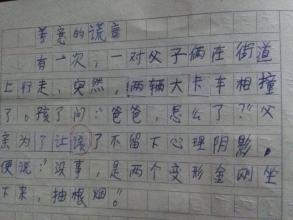 善意的谎言
有一次，一对父子俩在街道
上行走，突然，两辆大卡车相撞
了。孩子问：“爸爸，怎么了？”父
亲为了让孩子不留下心理阴影，
便说：“没事，是两个变形金刚坐
下来，抽根烟。”